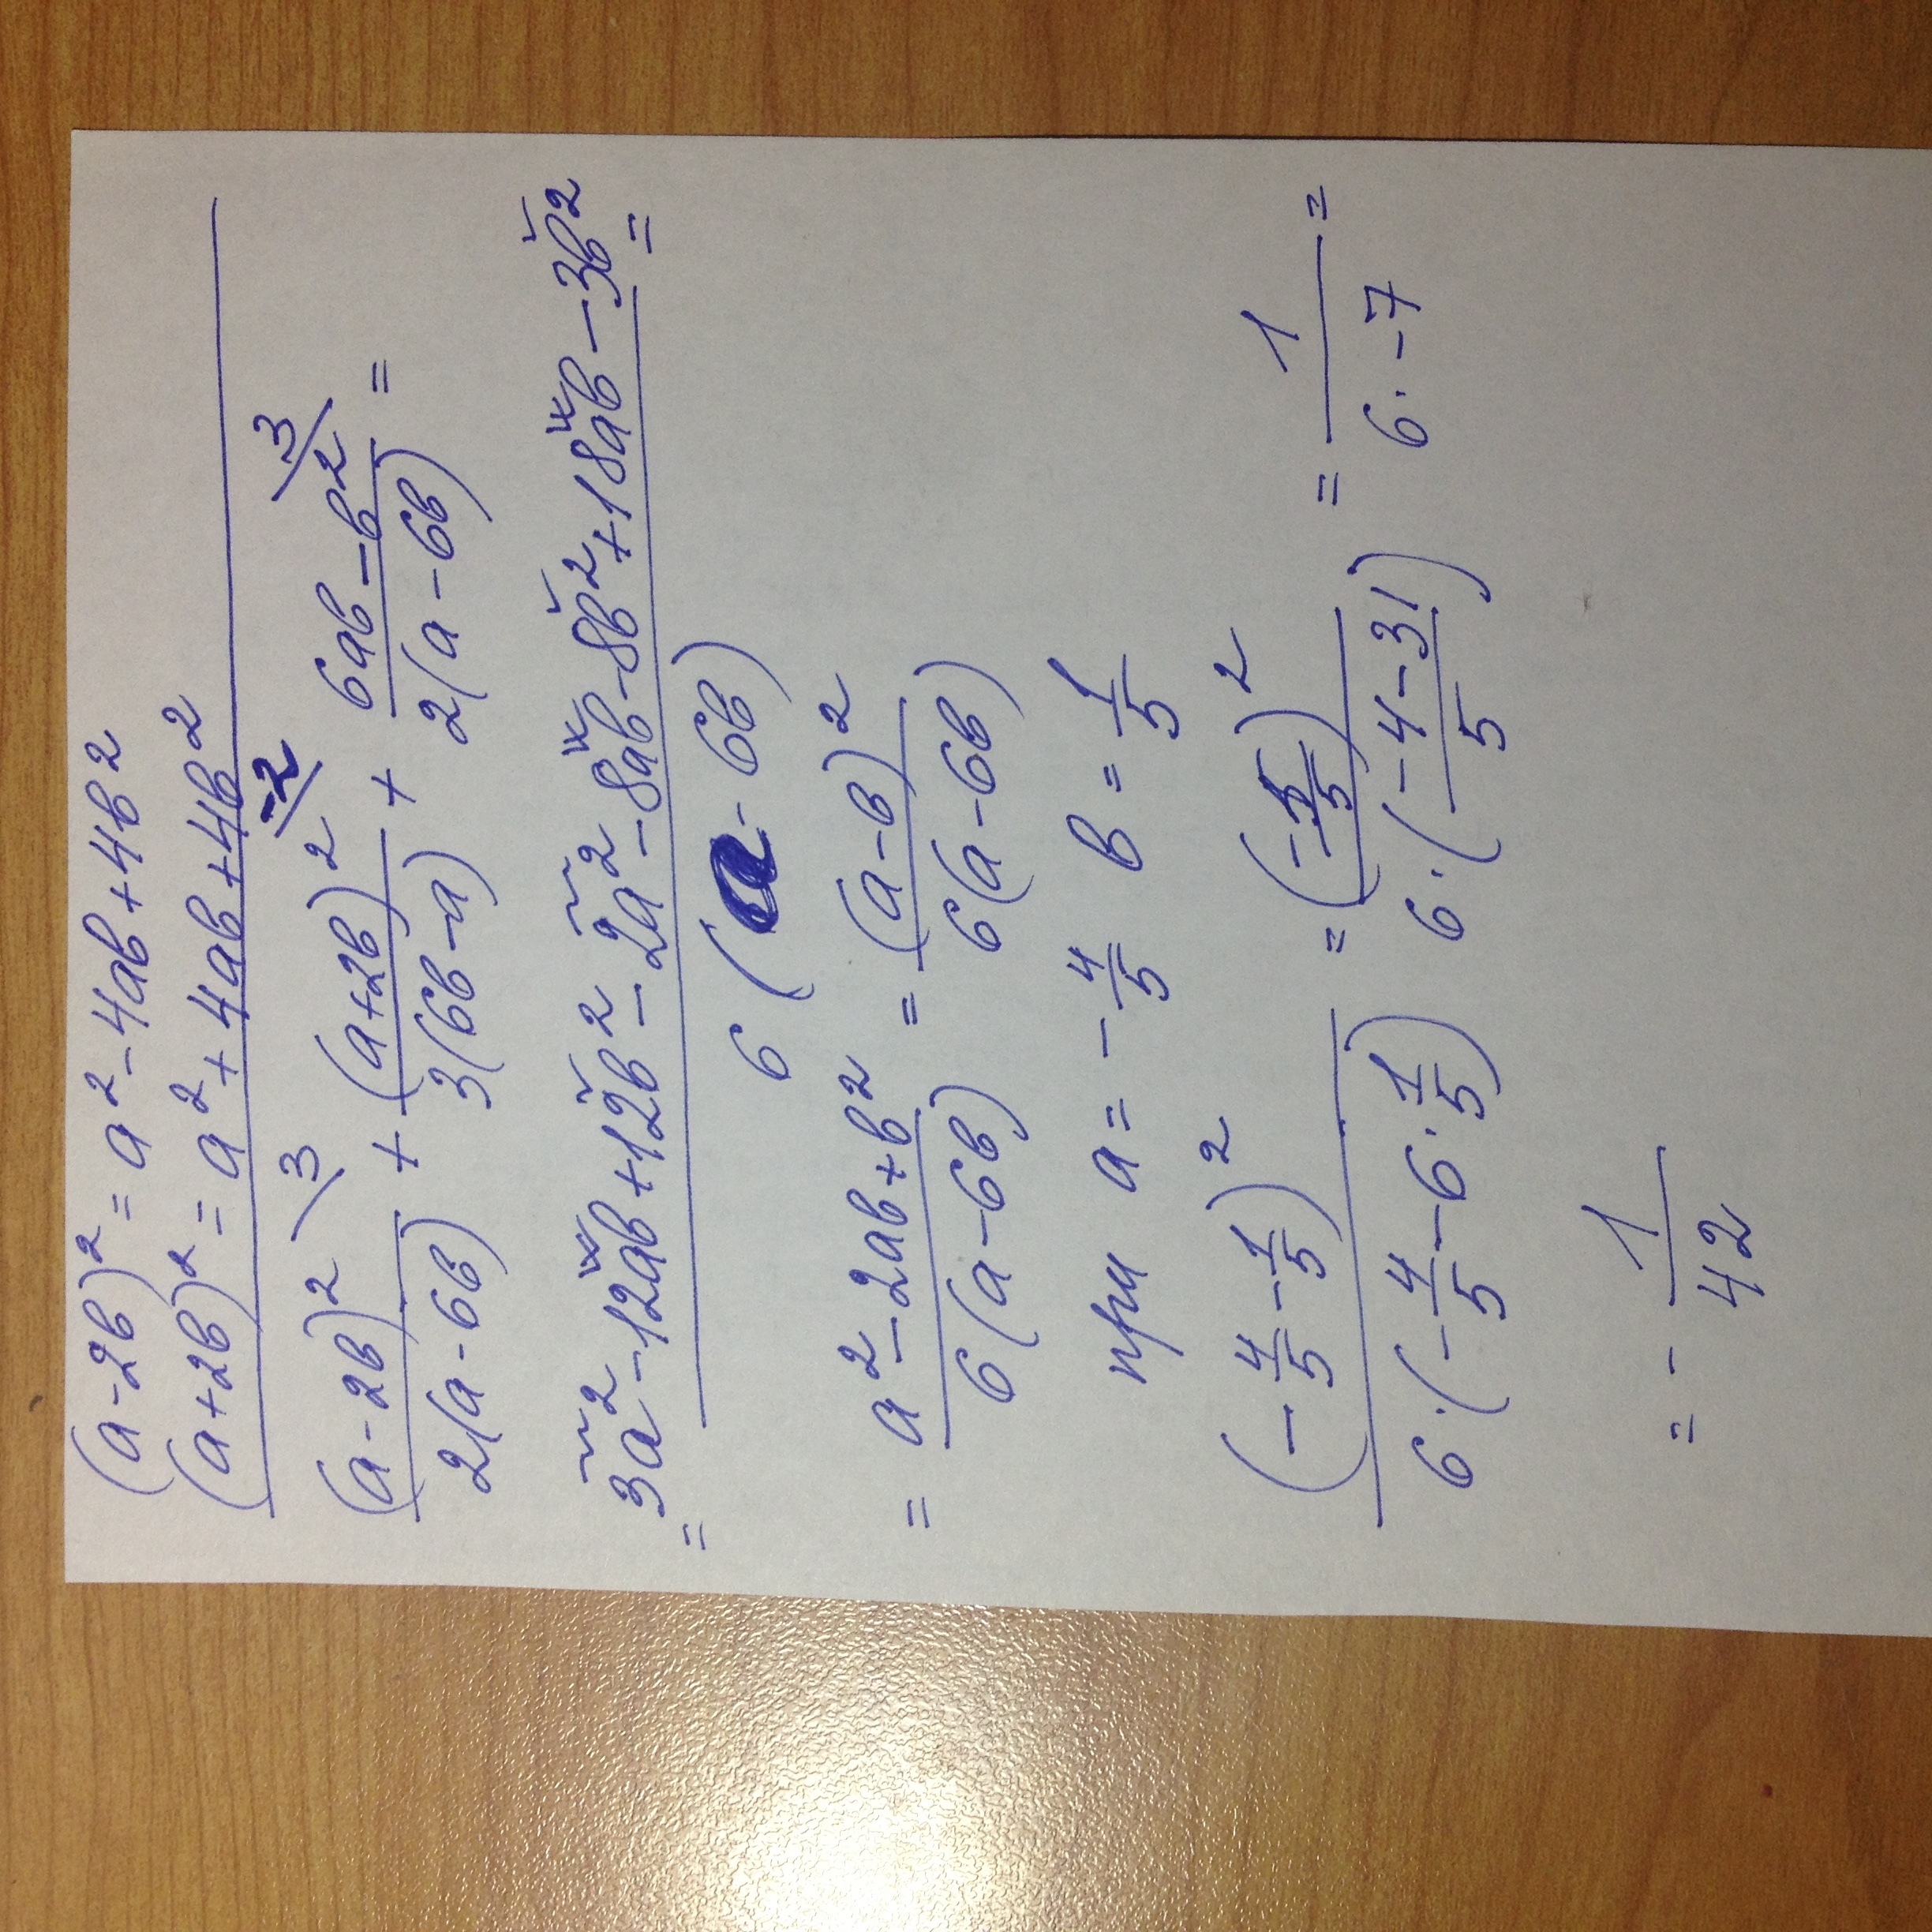 (a-2b)² = a² - 4ab + 4b²
(a+2b)² = a² + 4ab + 4b²
(a-2b)² /3 / 2(a-6b) + (a+2b)² /-2 / 3(6b-a) + 6ab-b² /3 / 2(a-6b) =
= 3a² - 12ab + 12b² - 2a² - 8ab - 8b² + 18ab - 3b² / 6(a-6b) =
= a² - 2ab + b² / 6(a-6b) = (a-b)² / 6(a-6b)
при a = - 4/5 b = 1/5
(- 4/5 - 1/5)² / 6·(- 4/5 - 6· 1/5) = (- 5/5)² / 6·( -4-31 / 5 ) = 1 / 6·-7 =
= - 1/42